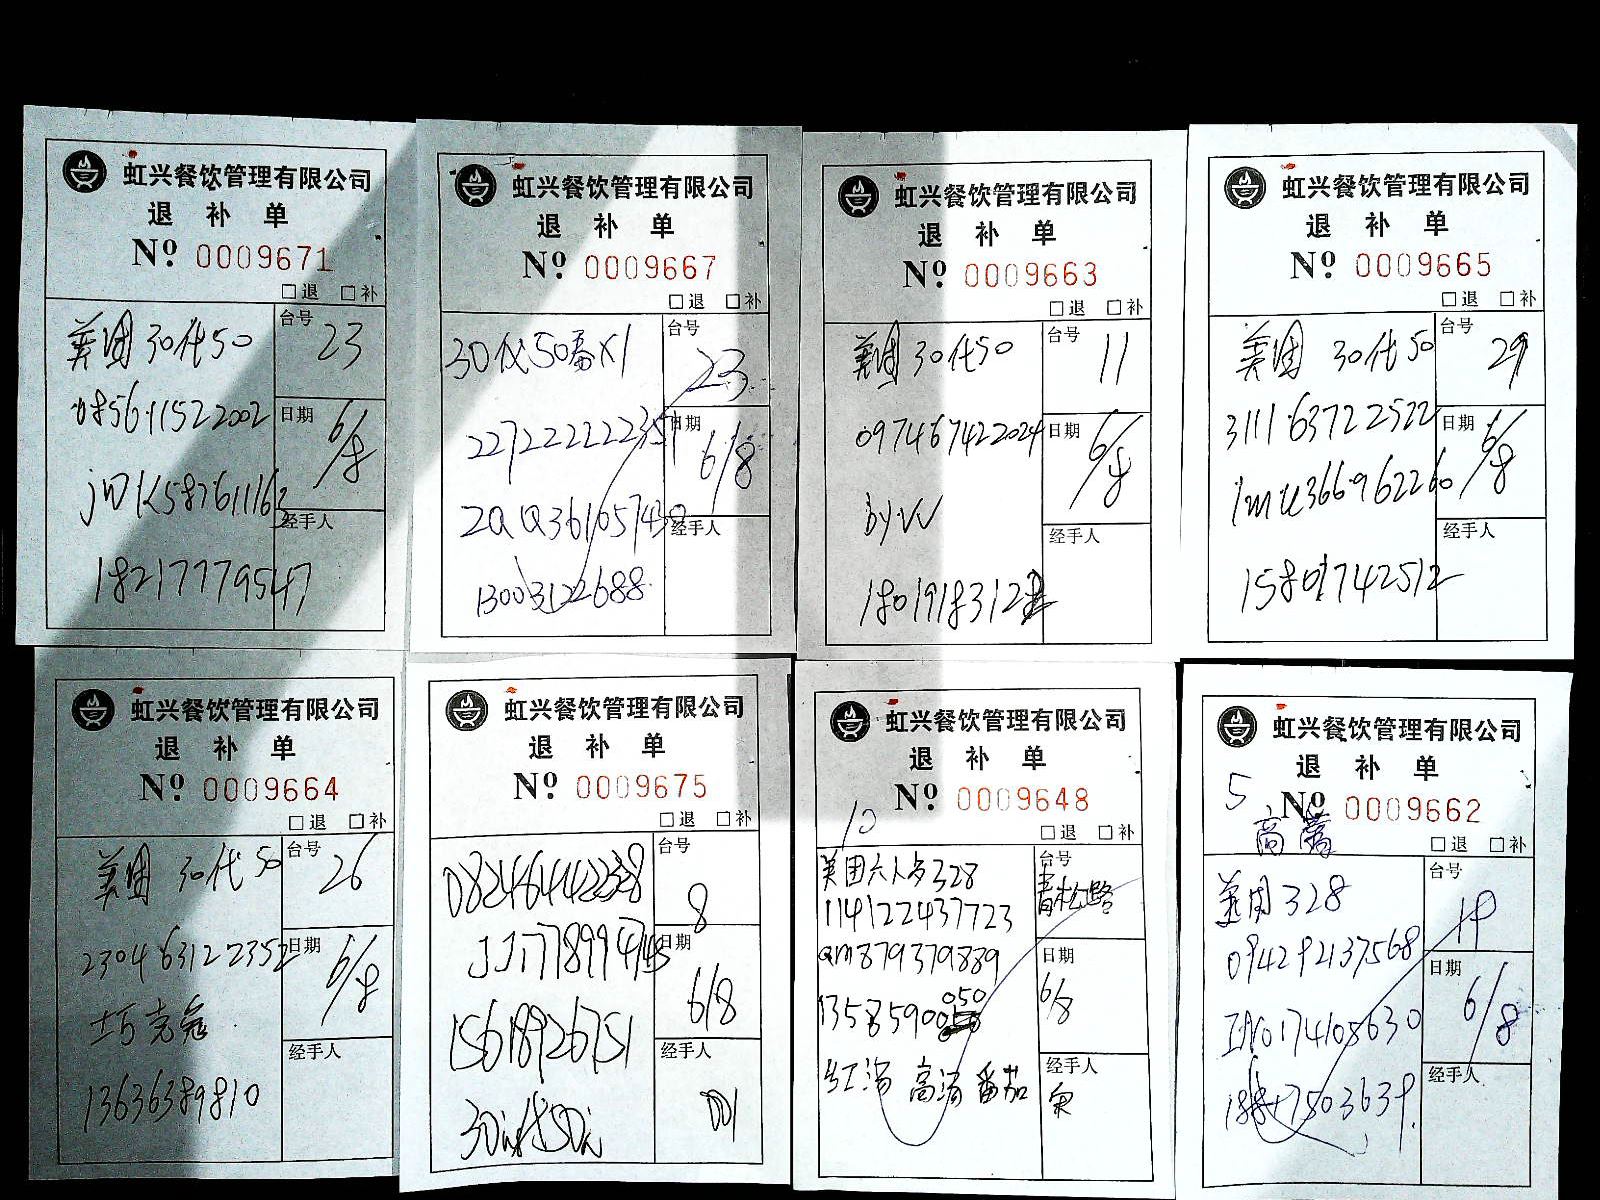 虹兴餐饮管理有限公司
退 补 单
Nº 0009671
□退 □补
美团 30代50
台号
23
085611522002
日期
6/8
jWK587611163
经手人
18217779547
虹兴餐饮管理有限公司
退 补 单
Nº 0009667
□退 □补
30代50番x1
台号
23
227222222351
日期
6/8
经手人
13003122688
虹兴餐饮管理有限公司
退 补 单
Nº 0009663
□退 □补
美团 30代50
台号
11
097467422024
日期
6/8
经手人
虹兴餐饮管理有限公司
退 补 单
Nº 0009665
□退 □补
美团 30代50
台号
29
311163722522
日期
6/8
经手人
15801742512
虹兴餐饮管理有限公司
退 补 单
Nº 0009664
□退 □补
美团 30代50
台号
26
230463122352
日期
6/8
巧克兔
经手人
13636389810
虹兴餐饮管理有限公司
退 补 单
Nº 0009675
□退 □补
082464442338
台号
8
日期
6/8
15618926751
经手人
001
虹兴餐饮管理有限公司
退 补 单
Nº 0009648
□退 □补
10
美团六人多328
台号
青松路
114122437723
qm879379889
日期
6/8
经手人
红汤 高汤 番茄
虹兴餐饮管理有限公司
退 补 单
5
Nº 0009662
□退 □补
美团 328
台号
19
094292137568
日期
6/8
经手人